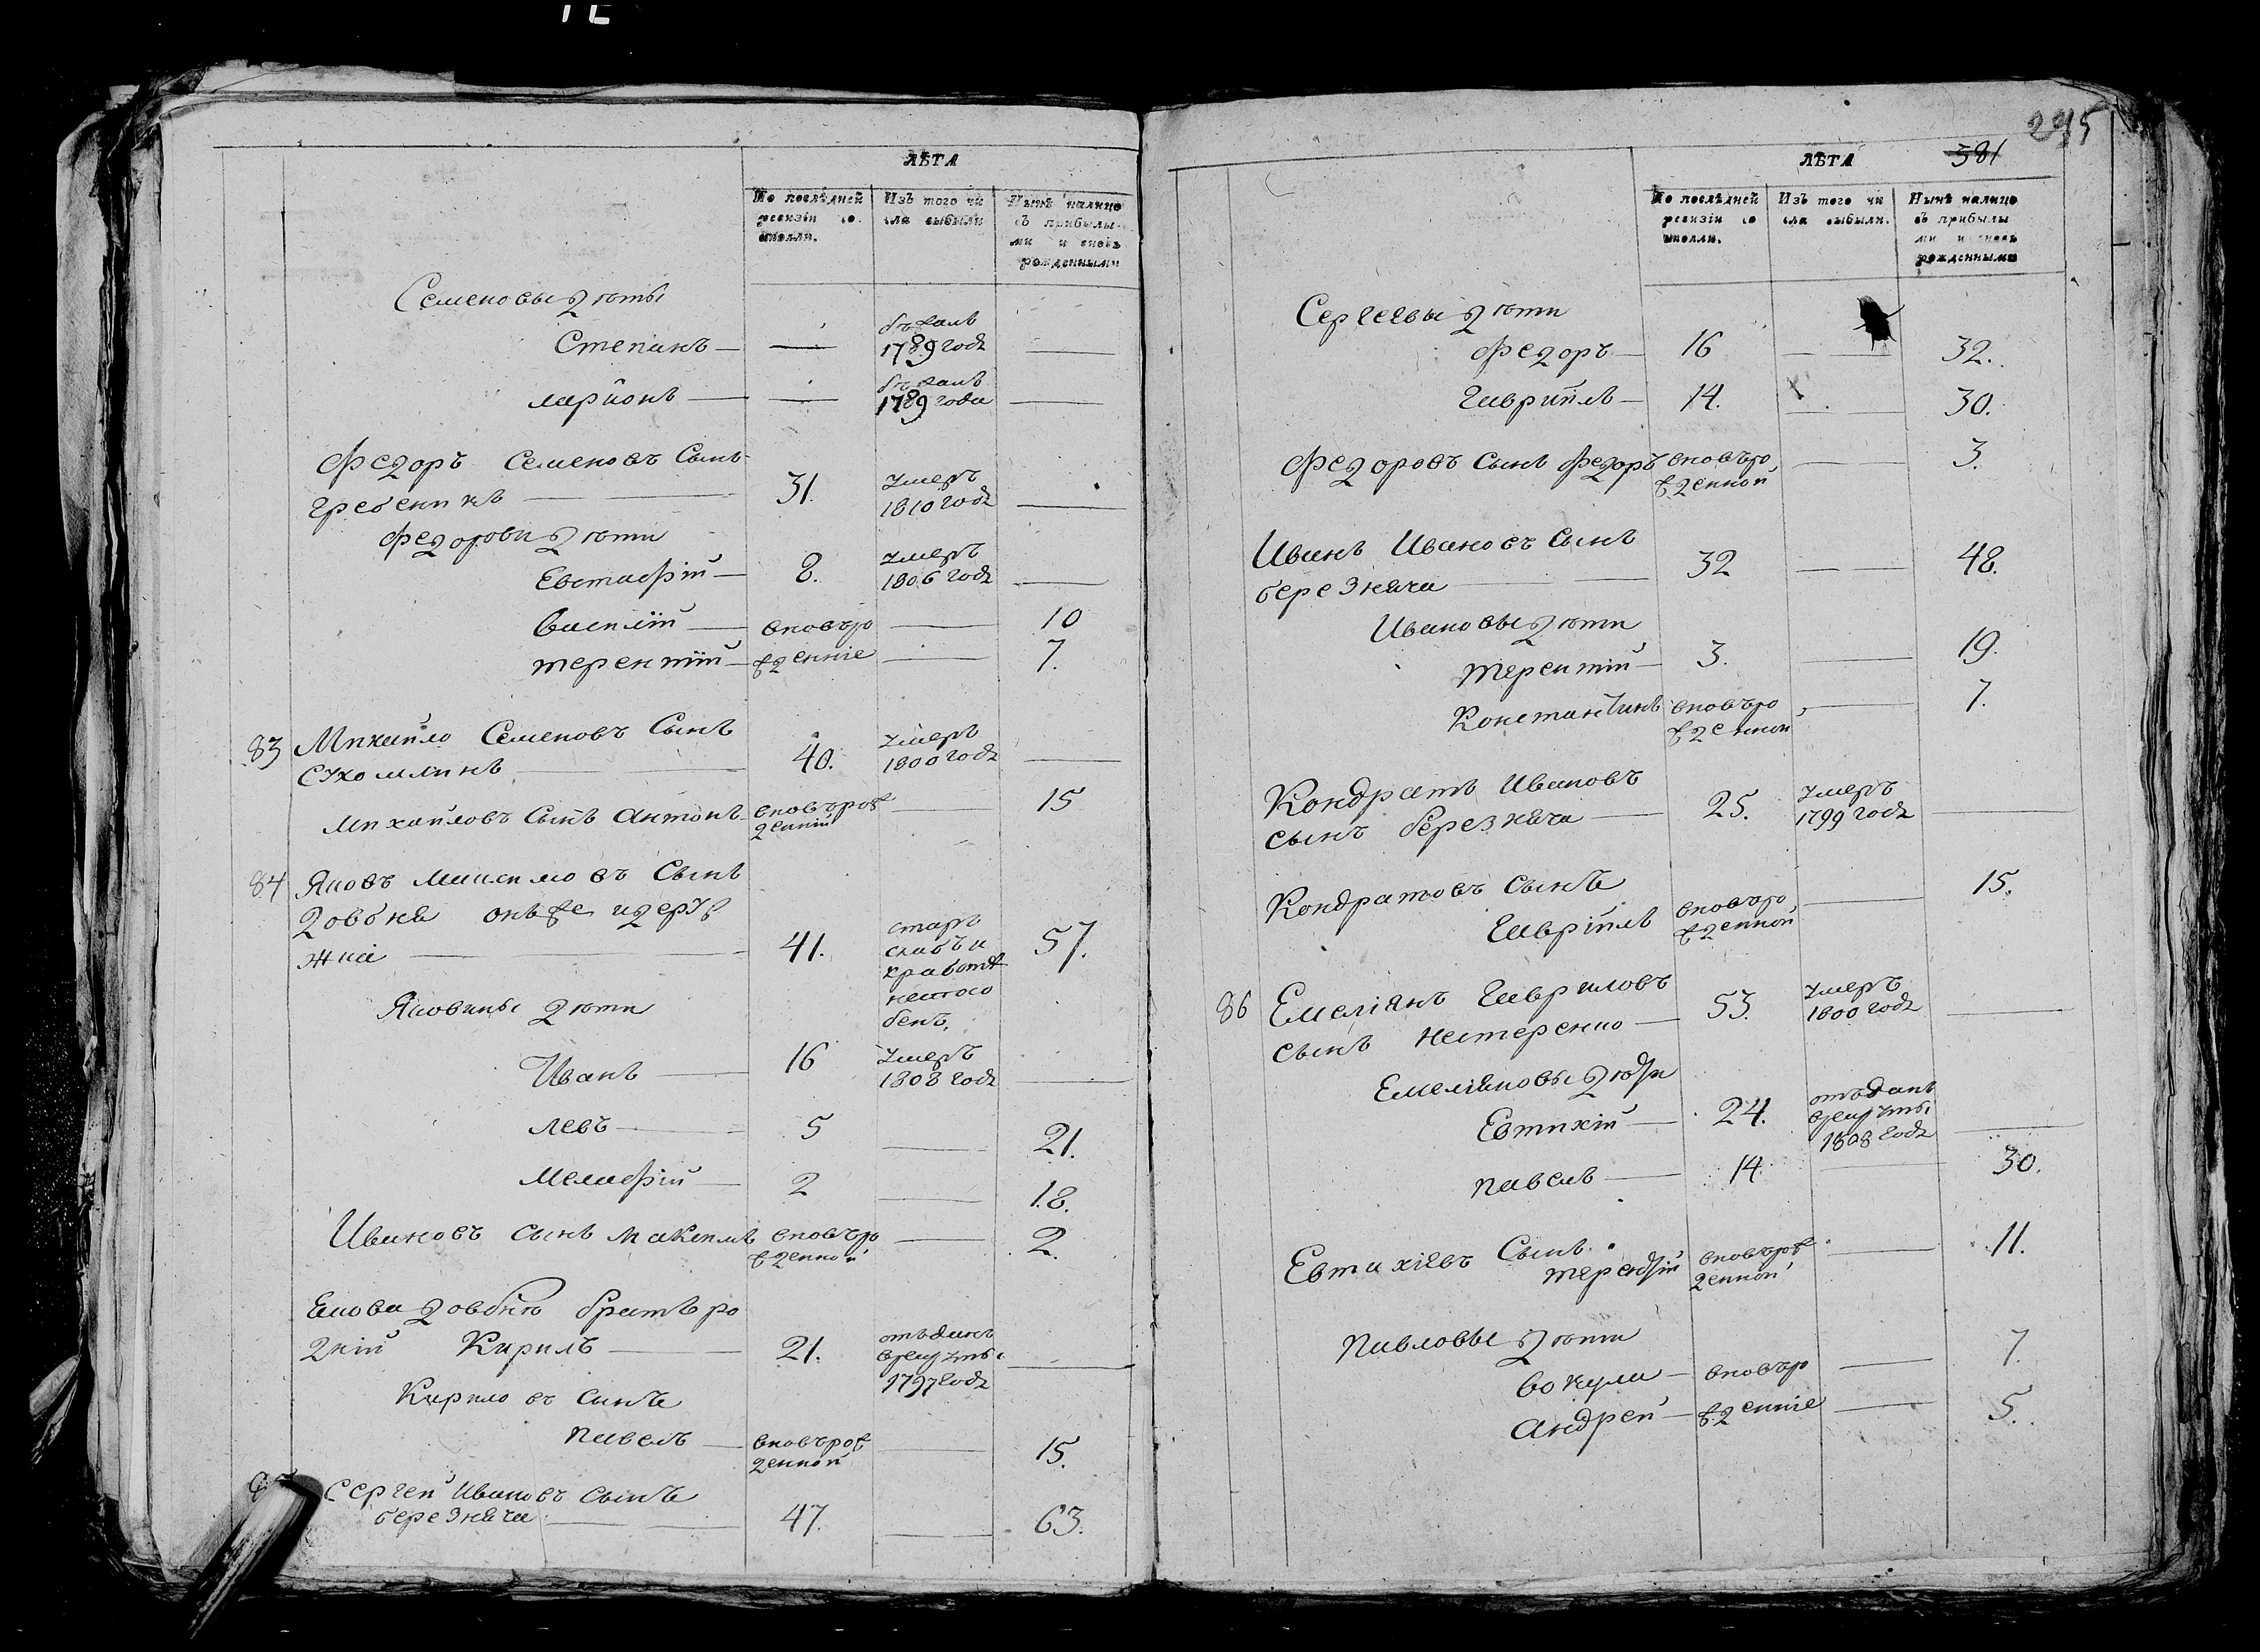 ЛѢТА
По послѣдней
ревизіи со
стояли.
Изъ того чи
сла выбыли
Нынѣ налицо
съ прибылы
ми и вновь
рожденными
Семеновы дѣты
Степанъ — — бѣжалъ
1789 годѣ —
ларионъ — — бѣжалъ
1789 года —
Федоръ Семеновъ Сынъ
гребеникъ — 31. умеръ
1810 годѣ —
Федорови дѣти
Евстафій — 8. умеръ
1806 годѣ —
василій — вновъро — 10
терентій — жденніе — 7.
83 Михайло Семеновъ Сынъ
Сухомлинъ — 40. умеръ
1800 годѣ —
михайловъ Сынъ антонъ вновърож
денній — 15
84 Яковъ максимовъ Сынъ
довбня онъже идеруж
жка — 41. старъ
слабъ и
кработѣ
неспосо
бенъ, 57.
Яковины дѣти
Иванъ — 16 умеръ
1808 годѣ —
левъ — 5 — 21.
мелафій — 2 — 18.
Ивановъ сынъ максимъ вновъро
жденной — 2.
Якова довбнѣ братъ ро
дній Кирилъ — 21. отъданъ
врекруты
1797 годѣ —
Кирило въ сынъ
павелъ — вновърож
денной — 15.
Сергей Ивановъ сынъ
березняча — 47. — 63.
295
381
ЛѢТА
По послѣдней
ревизіи со
стояли.
Изъ того чи
сла выбыли.
Нынѣ налицо
съ прибылы
ми и вновь
рожденными
Сергеевы дѣти
Федоръ — 16 — 32.
гаврійлъ — 14. — 30.
Федоровъ сынъ федоръ вновъро
жденной — 3.
Иванъ Ивановъ Сынъ
березняча — 32 — 48.
Ивановы дѣти
терентій — 3. — 19.
Константинъ вновъро
жденной — 7.
Кондратъ Ивановъ
сынъ березняча — 25. умеръ
1799 годѣ —
Кондратовъ сынъ
гаврійлъ вновъро
жденной — 15.
86 Емеліянъ гавриловъ
сынъ нестеренко — 53. умеръ
1800 годѣ —
Емеліяновы дѣти
Евтихій — 24. отъданъ
врекруты
1808 годѣ —
павелъ — 14 — 30.
Евтихіевъ Сынъ
терентій вновърож
денной — 11.
павловы дѣти
вокула — вновъро — 7.
андрей — жденніе — 5.